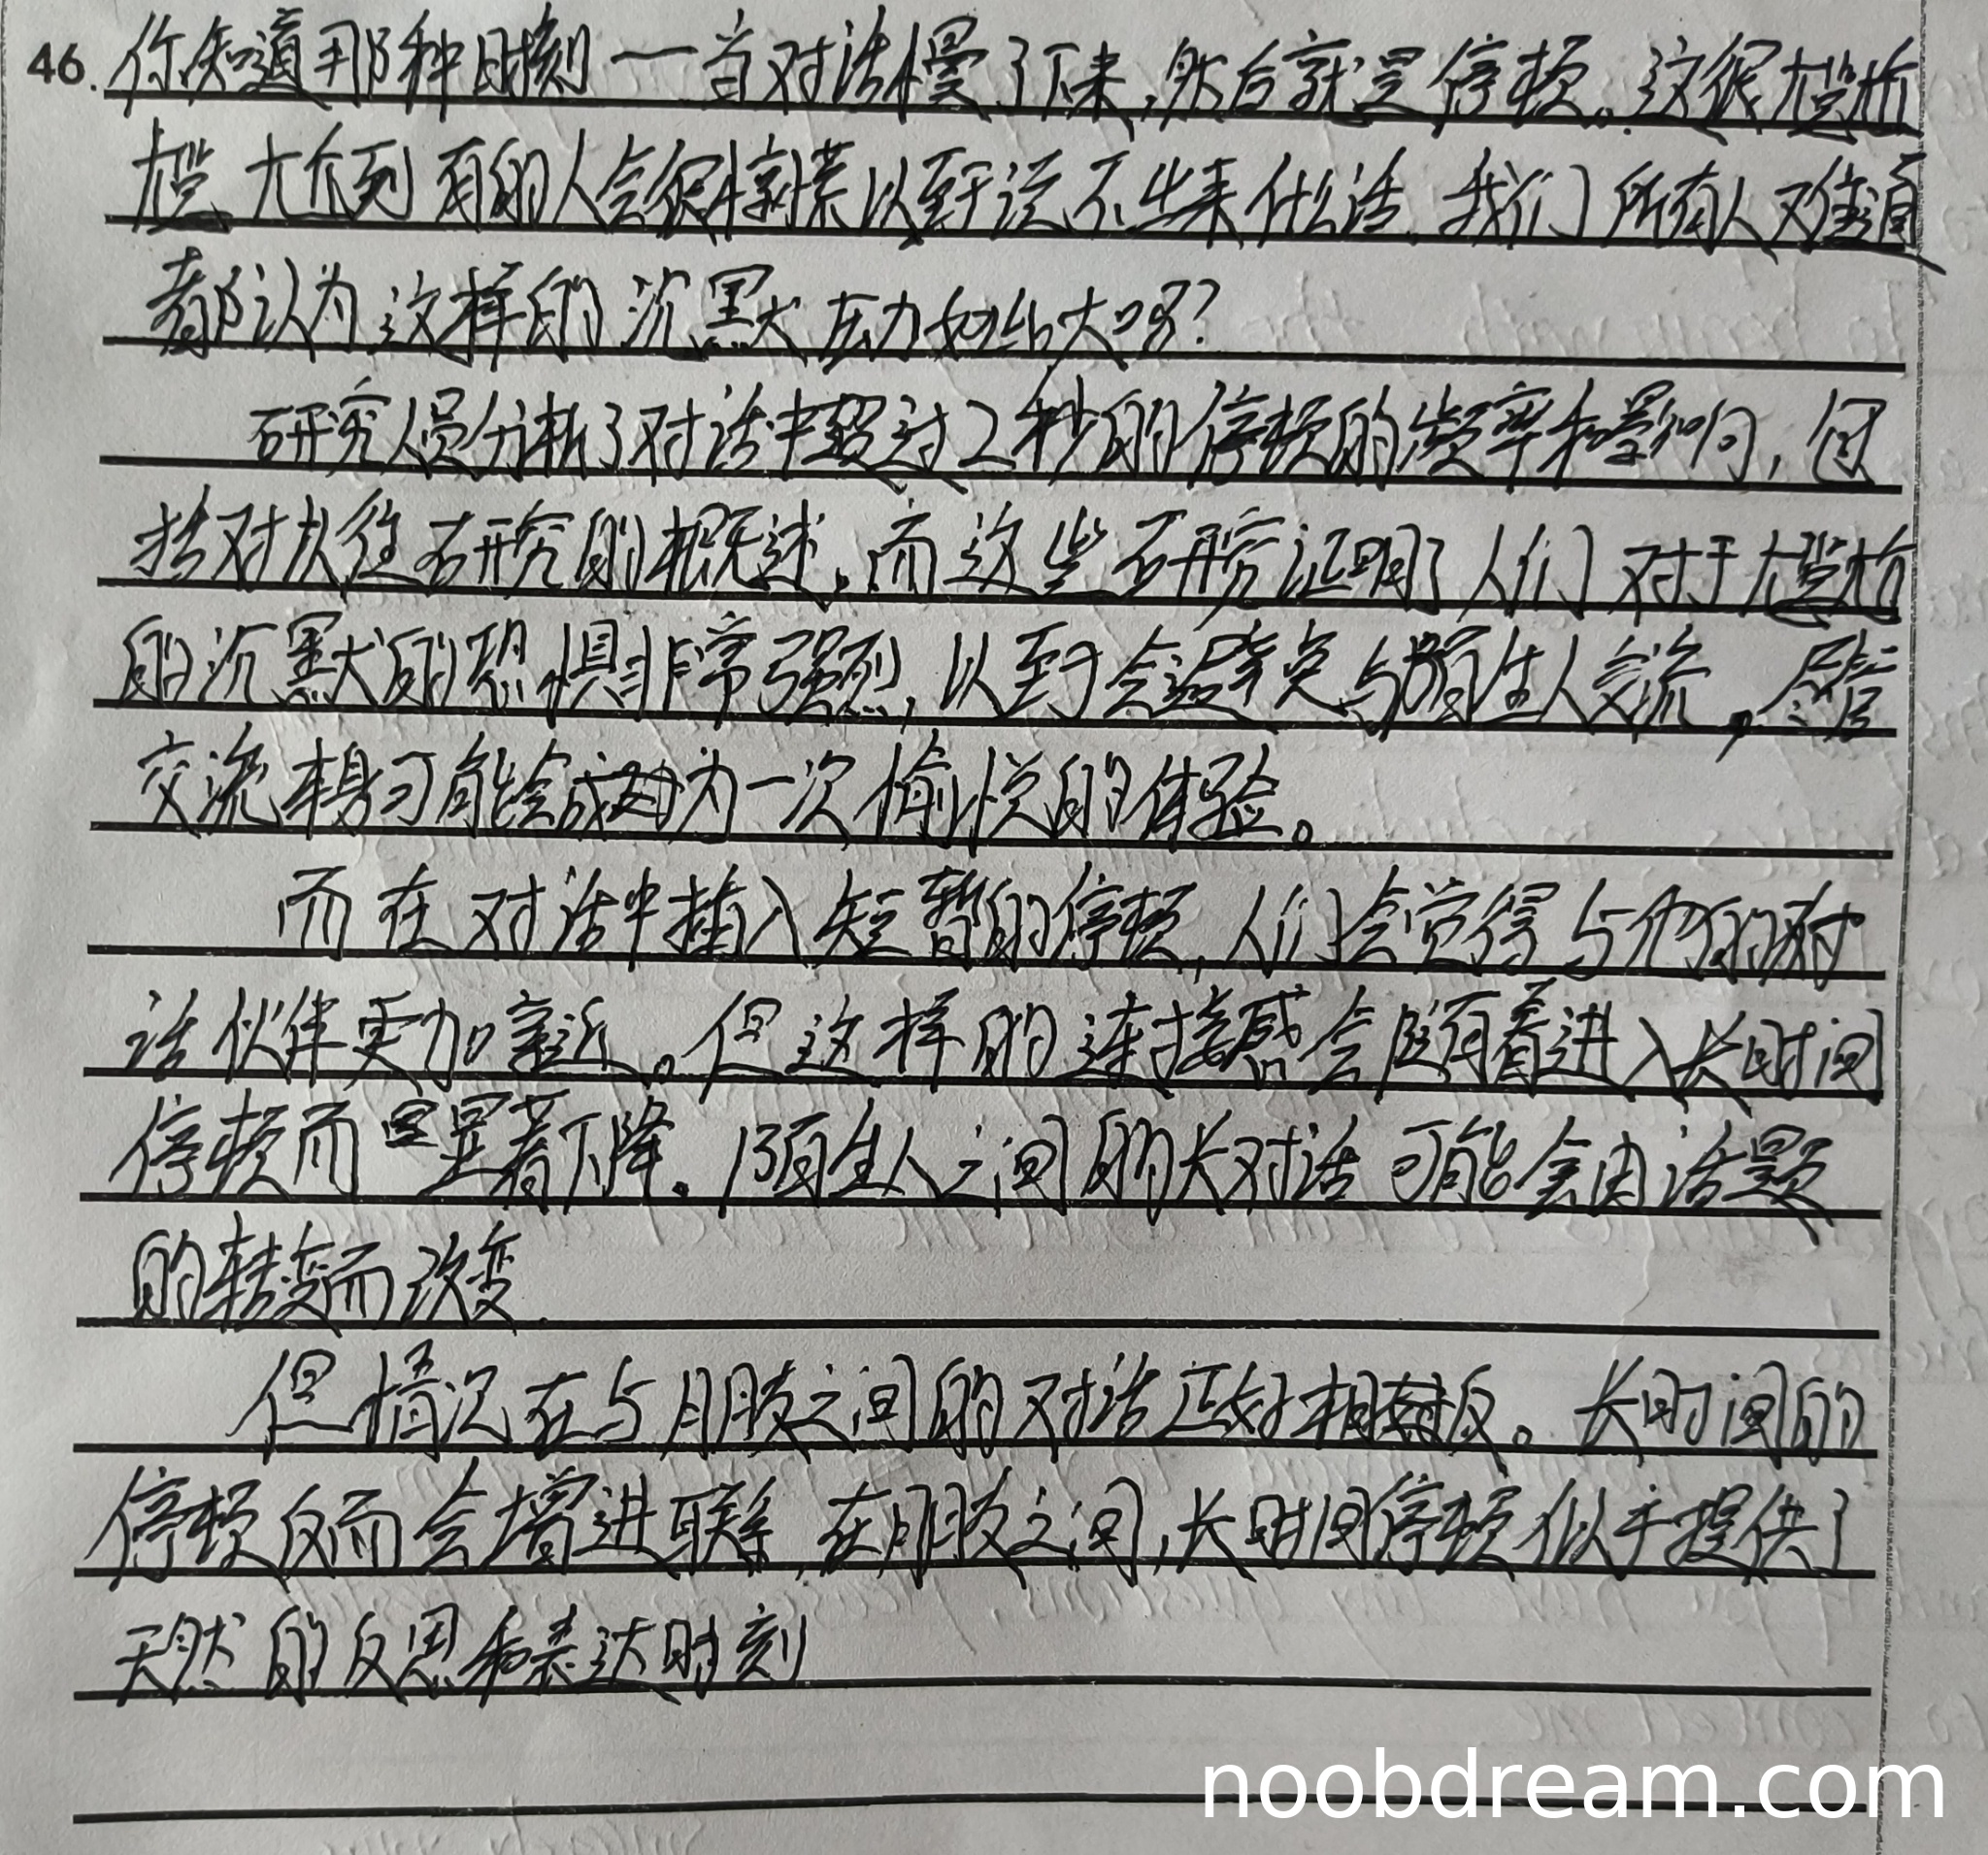 46. 你知道那种时刻一当对话慢了下来,然后就是停顿。这很尴尬
尴尬到有的人会很惊慌以至于说不出来什么话。我们所有人难道
都认为这样的沉默压力如此大吗?
研究人员分析了对话中超过2秒的停顿的频率和影响,包
括对从往研究的概述。而这些研究证明了人们对于尴尬
的沉默的恐惧非常强烈,以至于会避免与陌生人交流,尽管
交流本身可能会成为一次愉悦的体验。
而在对话中插入短暂的停顿,人们会觉得与他们的对
话伙伴更加亲近。但这样的连接感会随着进入长时间
停顿而显著下降。陌生人之间的长对话可能会由话题
的转变而改变.
但情况在与朋友之间的对话正好相反。长时间的
停顿反而会增进联系,在朋友之间,长时间停顿似乎提供了
天然的反思和表达时刻
noobdream.com